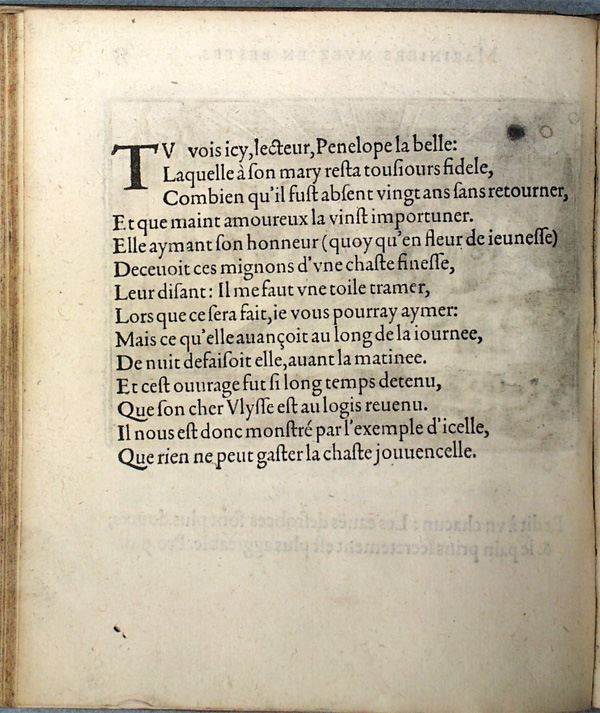 TV vois icy, lecteur, Penelope la belle:
Laquelle à ſon mary reſta touſiours fidele,
Combien qu'il fuſt abſent vingt ans ſans retourner,
Et que maint amoureux la vinſt importuner.
Elle aymant ſon honneur (quoy qu'en fleur de ieuneſſe)
Deceuoit ces mignons d'vne chaſte fineſſe,
Leur diſant: Il me faut vne toile tramer,
Lors que ce ſera fait, ie vous pourray aymer:
Mais ce qu'elle auançoit au long de la iournee,
De nuit defaiſoit elle, auant la matinee.
Et ceſt ouurage fut ſi long temps detenu,
Que ſon cher Vlyſſe eſt au logis reuenu.
Il nous eſt donc monſtré par l'exemple d'icelle,
Que rien ne peut gaſter la chaſte jouuencelle.